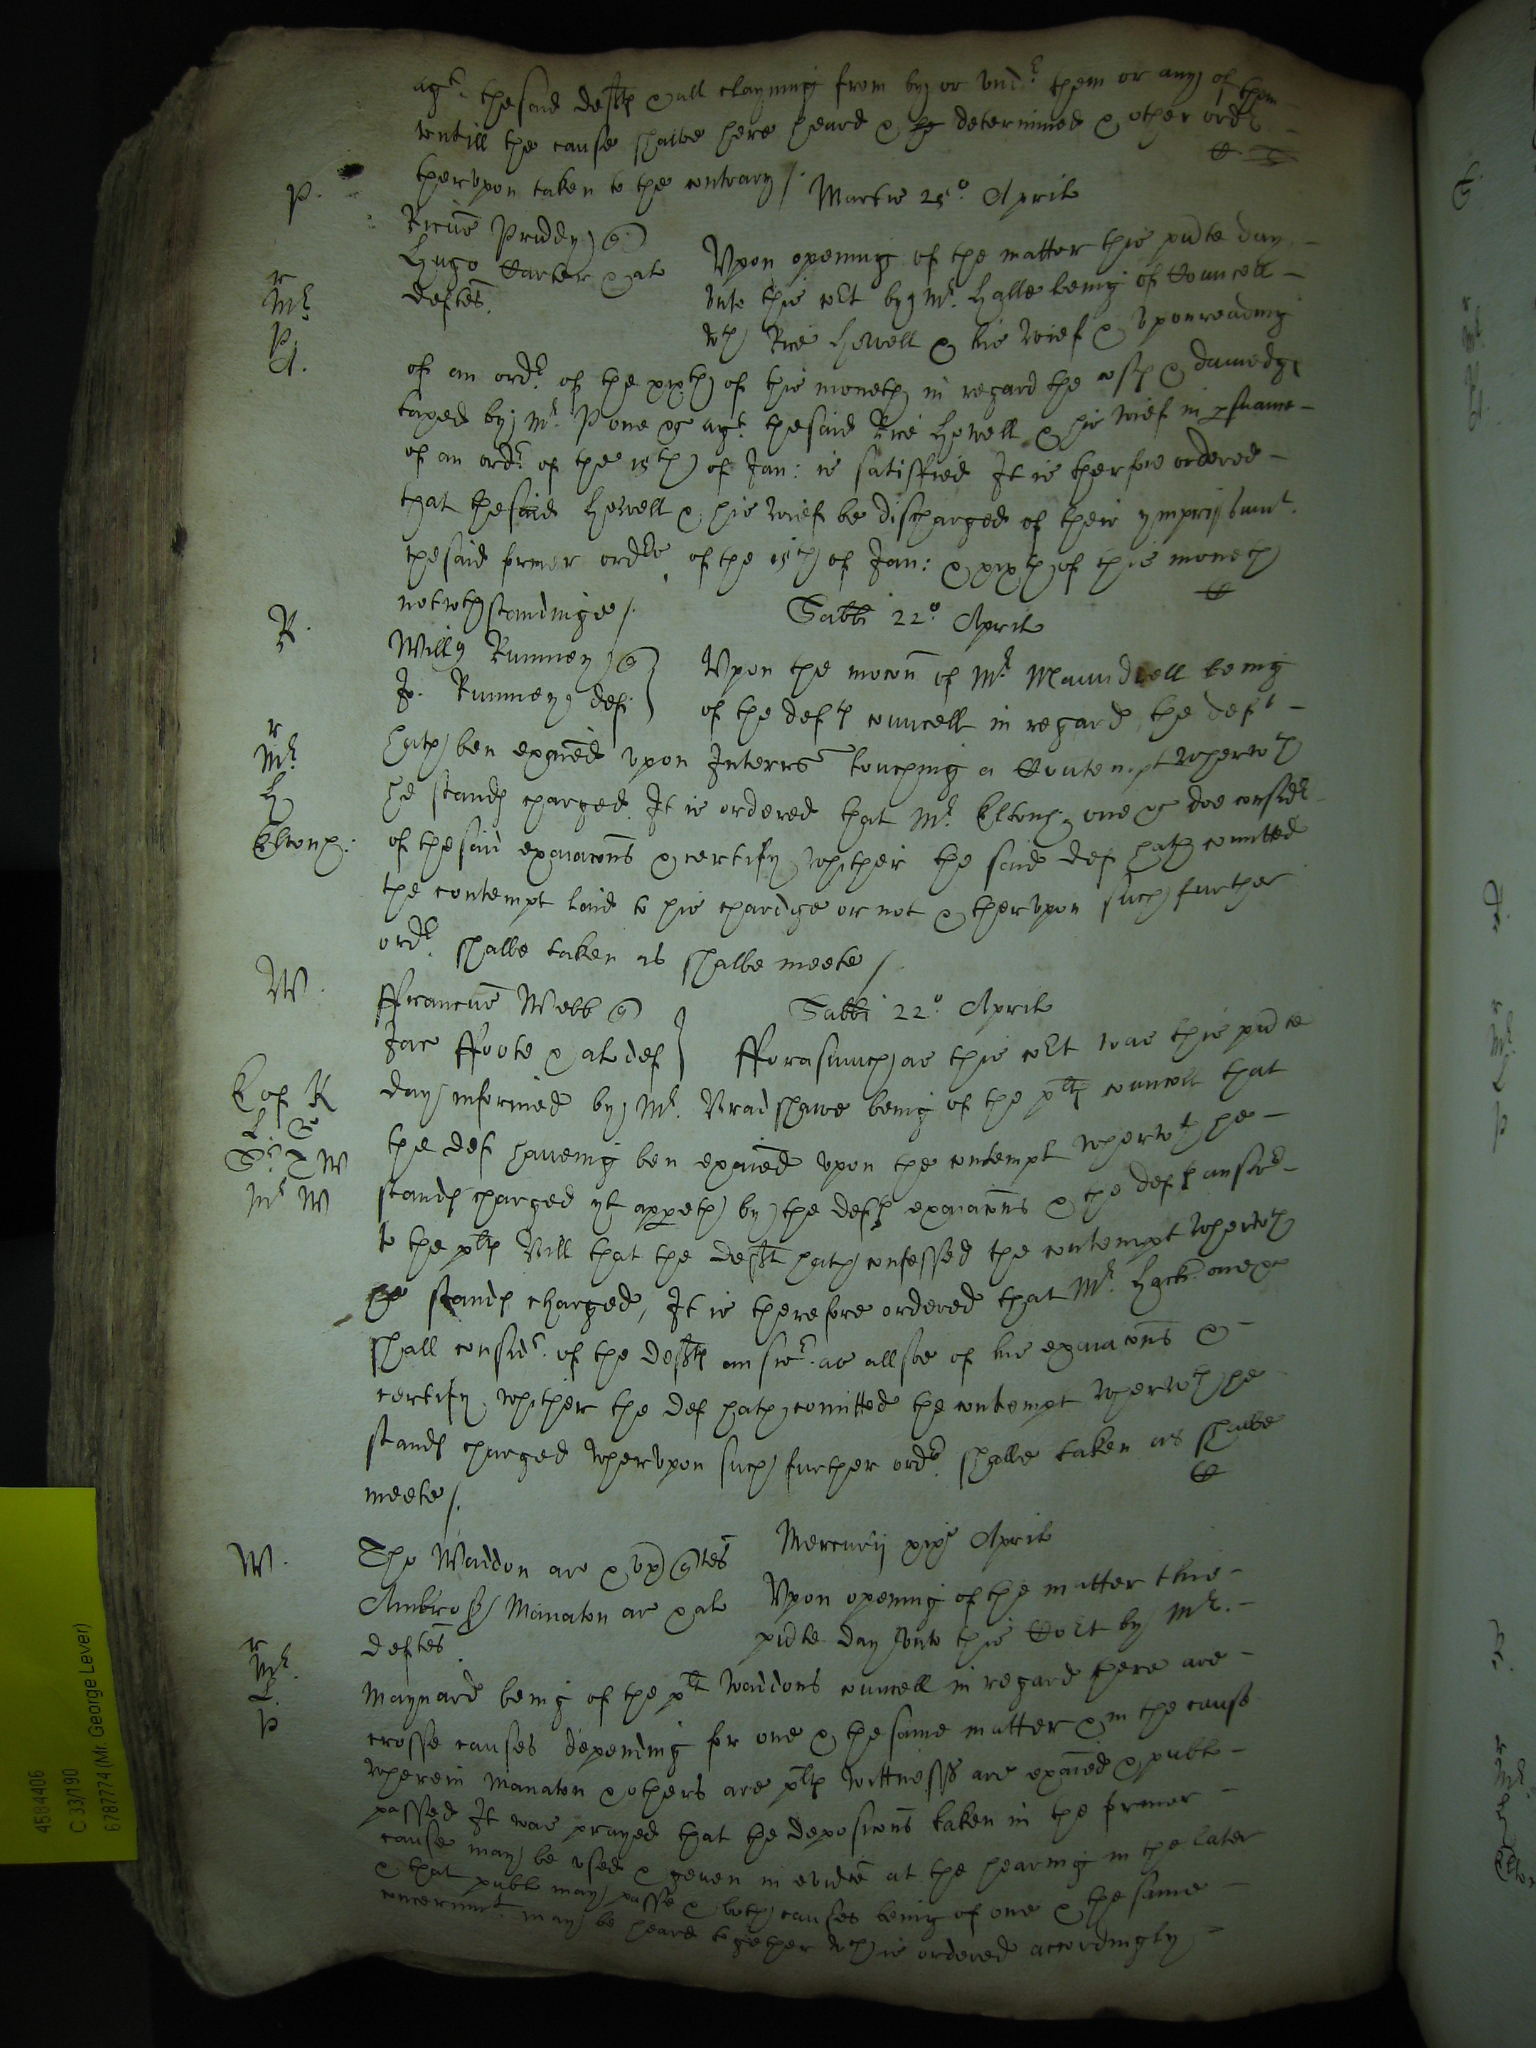 agt. the said deftℯ & all clayming from by or undr. them or any of them
untill the cause shalbe here heard & determined & other ordr.
therupon taken to the contrary /.
Martis 25o. Aprilis
P.
Ricus Priddy
Hugo Carter & al
deftes.
Upon opening of the matter this pnte day
unto this cort by Mr. Halle being of Councell
wth Rice Howell & his wief & upon reading
r
Mr.
P
of an ordr. of the xixth of this moneth in regard the costℯ & damedgℯ
taxed by Mr. Pone & agt. the said Rice Howell & his wief in psuance
of an ordr. of the 15th of Jan: is satisfied It is therfore ordered
that the said Howell & his wief be discharged of their ymprisonmt.
the said former ordrs. of the 15th of Jan: & xixth of this moneth
notwthstandinge /.
Sabbi 22o. Aprilis
R.
Willm Rumney
Jo. Rumney def.
Upon the mocon of Mr. Maundrell being
of the deftℯ councell in regard the deft
r
Mr.
H
Eltonh.
hath ben examed upon Interrs touching a Contempt wherwth
he standℯ charged. It is ordered that Mr. Eltonh. one & doe considr.
of the said examacons & certify whither the said def hath comitted
the contempt laid to his chardge or not & therupon such further
ordr. shalbe taken as shalbe meete /.
W.
Sabbi 22o Aprilis
ffrancus Webb
Jac ffoote & al def
fforasmuch as this cort was this pnte
L of K
day informed by Mr. Bradshawe being of the pltℯ councell that
the def haveing ben examed upon the contempt wherwth he
Mr W
standℯ charged yt appeth by the deftℯ examacons & the deftℯ answr.
to the pltℯ Bill that the deft hath confessed the contempt wherwth
he standℯ charged, It is therefore ordered that Mr. Hack. one &
shall considr. of the deftℯ answr. as allsoe of his examacons &
certify whither the def hath comitted the contempt wherwth he
standℯ charged wherupon such further ordr. shalbe taken as shalbe
meete /.
Mercurij xixo Aprilis
W.
Tho Waddon ar & ux
Ambrose Manaton ar & al
deftes.
Upon opening of the matter this
pnte day unto this Cort by Mr.
r
Mr.
L.
P
Maynard being of the plt Waddons councell in regard there are
crosse causes depending for one & the same matter & in the cause
wherein Manaton & others are pltℯ wittnesses are examed & publ
passed It was prayed that the deposicons taken in the former
cause may be used & geven in evidce at the hearing in the later
& that publ may passe & both causes being of one & the same
concernmt. may be heard together wch is ordered accordingly
4584406
C 33/190
6787774 (Mr. George Lever)